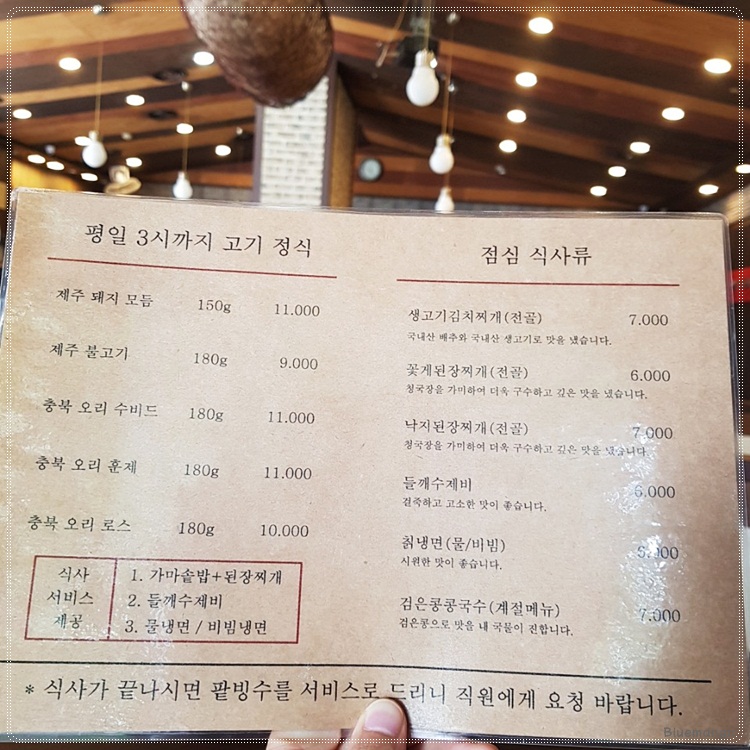 평일 3시까지 고기 정식
제주 돼지 모듬 150g 11.000
제주 불고기 180g 9.000
충북 오리 수비드 180g 11.000
충북 오리 훈제 180g 11.000
충북 오리 로스 180g 10.000
식사 서비스 제공
1. 가마솥밥+된장찌개
2. 들깨수제비
3. 물냉면 / 비빔냉면
점심 식사류
생고기김치찌개(전골) 7.000
국내산 배추와 국내산 생고기로 맛을 냈습니다.
꽃게된장찌개(전골) 6.000
청국장을 가미하여 더욱 구수하고 깊은 맛을 냈습니다.
낙지된장찌개(전골) 7.000
청국장을 가미하여 더욱 구수하고 깊은 맛을 냈습니다
들깨수제비 6.000
걸죽하고 고소한 맛이 좋습니다.
칡냉면(물/비빔)
시원한 맛이 좋습니다.
검은콩콩국수(계절메뉴) 7.000
검은콩으로 맛을 내 국물이 진합니다.
* 식사가 끝나시면 팥빙수를 서비스로 드리니 직원에게 요청 바랍니다.